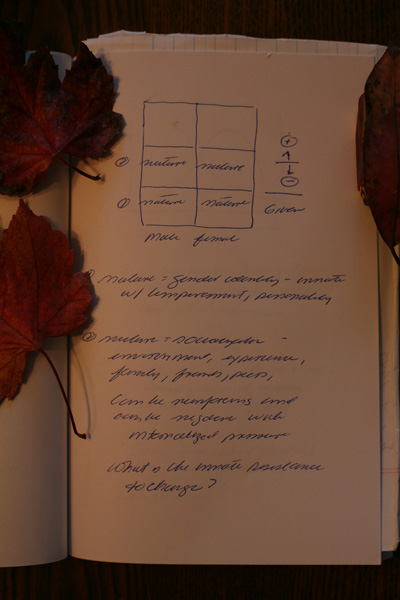 ② nurture nurture
① nature nature
+
-
Given
male female
① nature = gender identity - innate
w/ temperament, personality
② nurture = socialization -
environment, experience,
family, friends, peers,
Can be reinforcing and
can be negative with
internalized pressure
What is the innate resistance
to change?